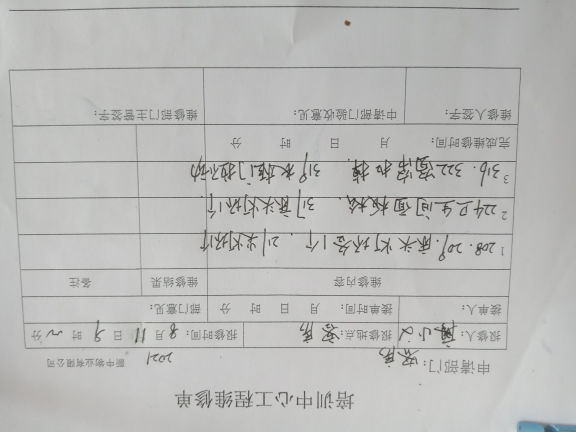 培训中心工程维修单
申请部门：客房 2021 新中物业有限公司
报修人： 小 报修地点：客房 报修时间：8月11日9时 分
接单人： 接单时间： 月 日 时 分 部门意见：
维修内容 维修结果 备注
1 208.209.床头灯坏各1个. 21 灯坏1个
2 224卫生间面板松. 317床头灯坏1个
3 316.322窗帘扣掉. 319衣柜门拉不动
完成维修时间： 月 日 时 分
维修人签字： 申请部门验收意见： 维修部门主管签字：